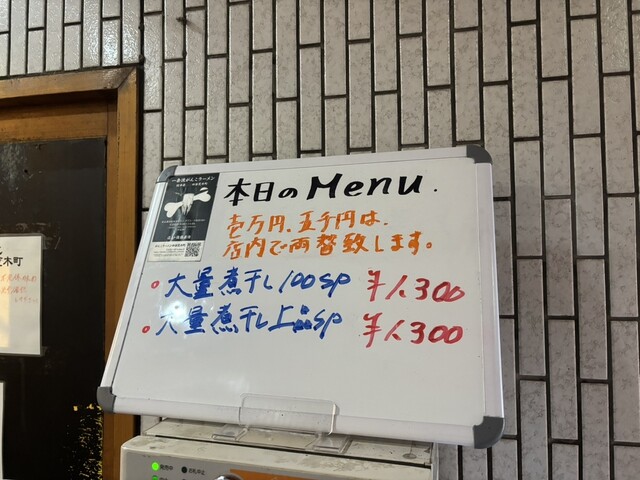 一条流がんこラーメン
本日のMenu.
壱万円、五千円は、
店内で両替致します。
大量煮干し100SP ¥1,300
大量煮干し上品SP ¥1,300
木町